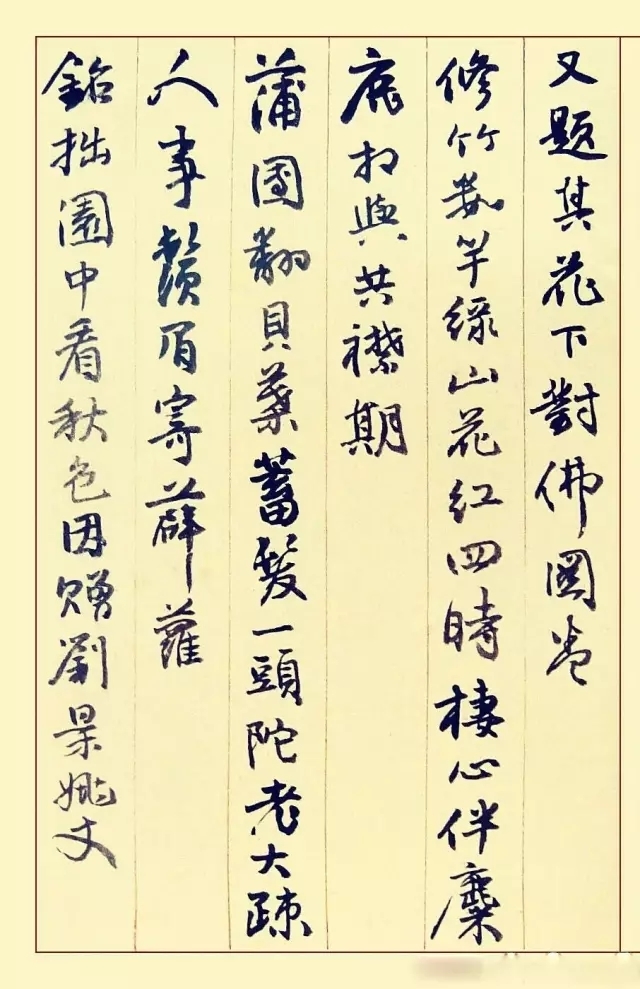 又題其花下對佛圖卷
修竹数竿綠山花红四時棲心伴麋
鹿相與共襟期
蒲團翻貝葉蓄髮一頭陀老大疎
人事鬚眉寄薜蘿
鉛拙園中看秋色因贈劉景姚丈